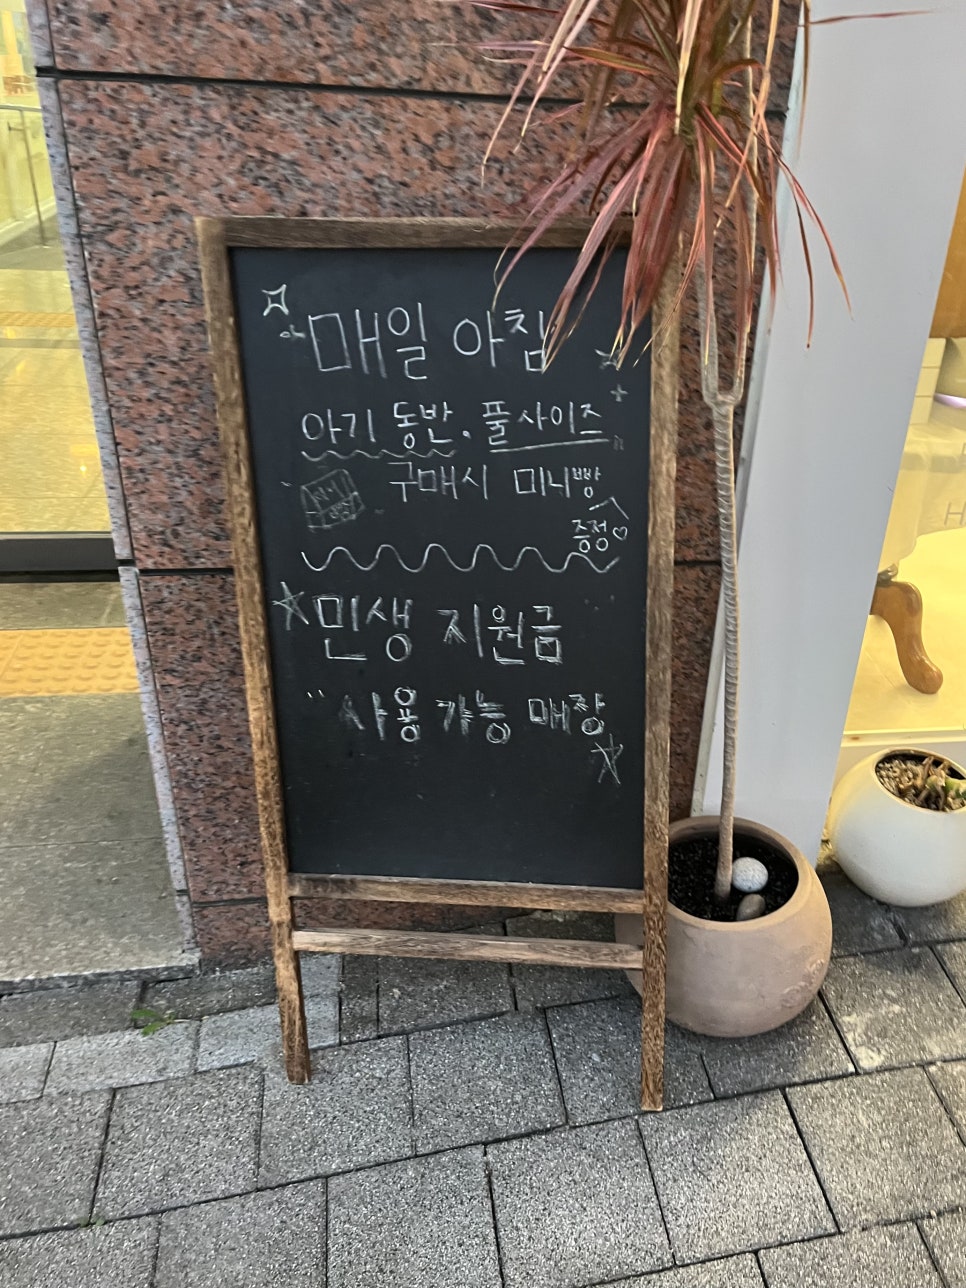 매일 아침
아기 동반. 풀사이즈
구매시 미니빵
증정♡
민생 지원금
" 사용 가능 매장